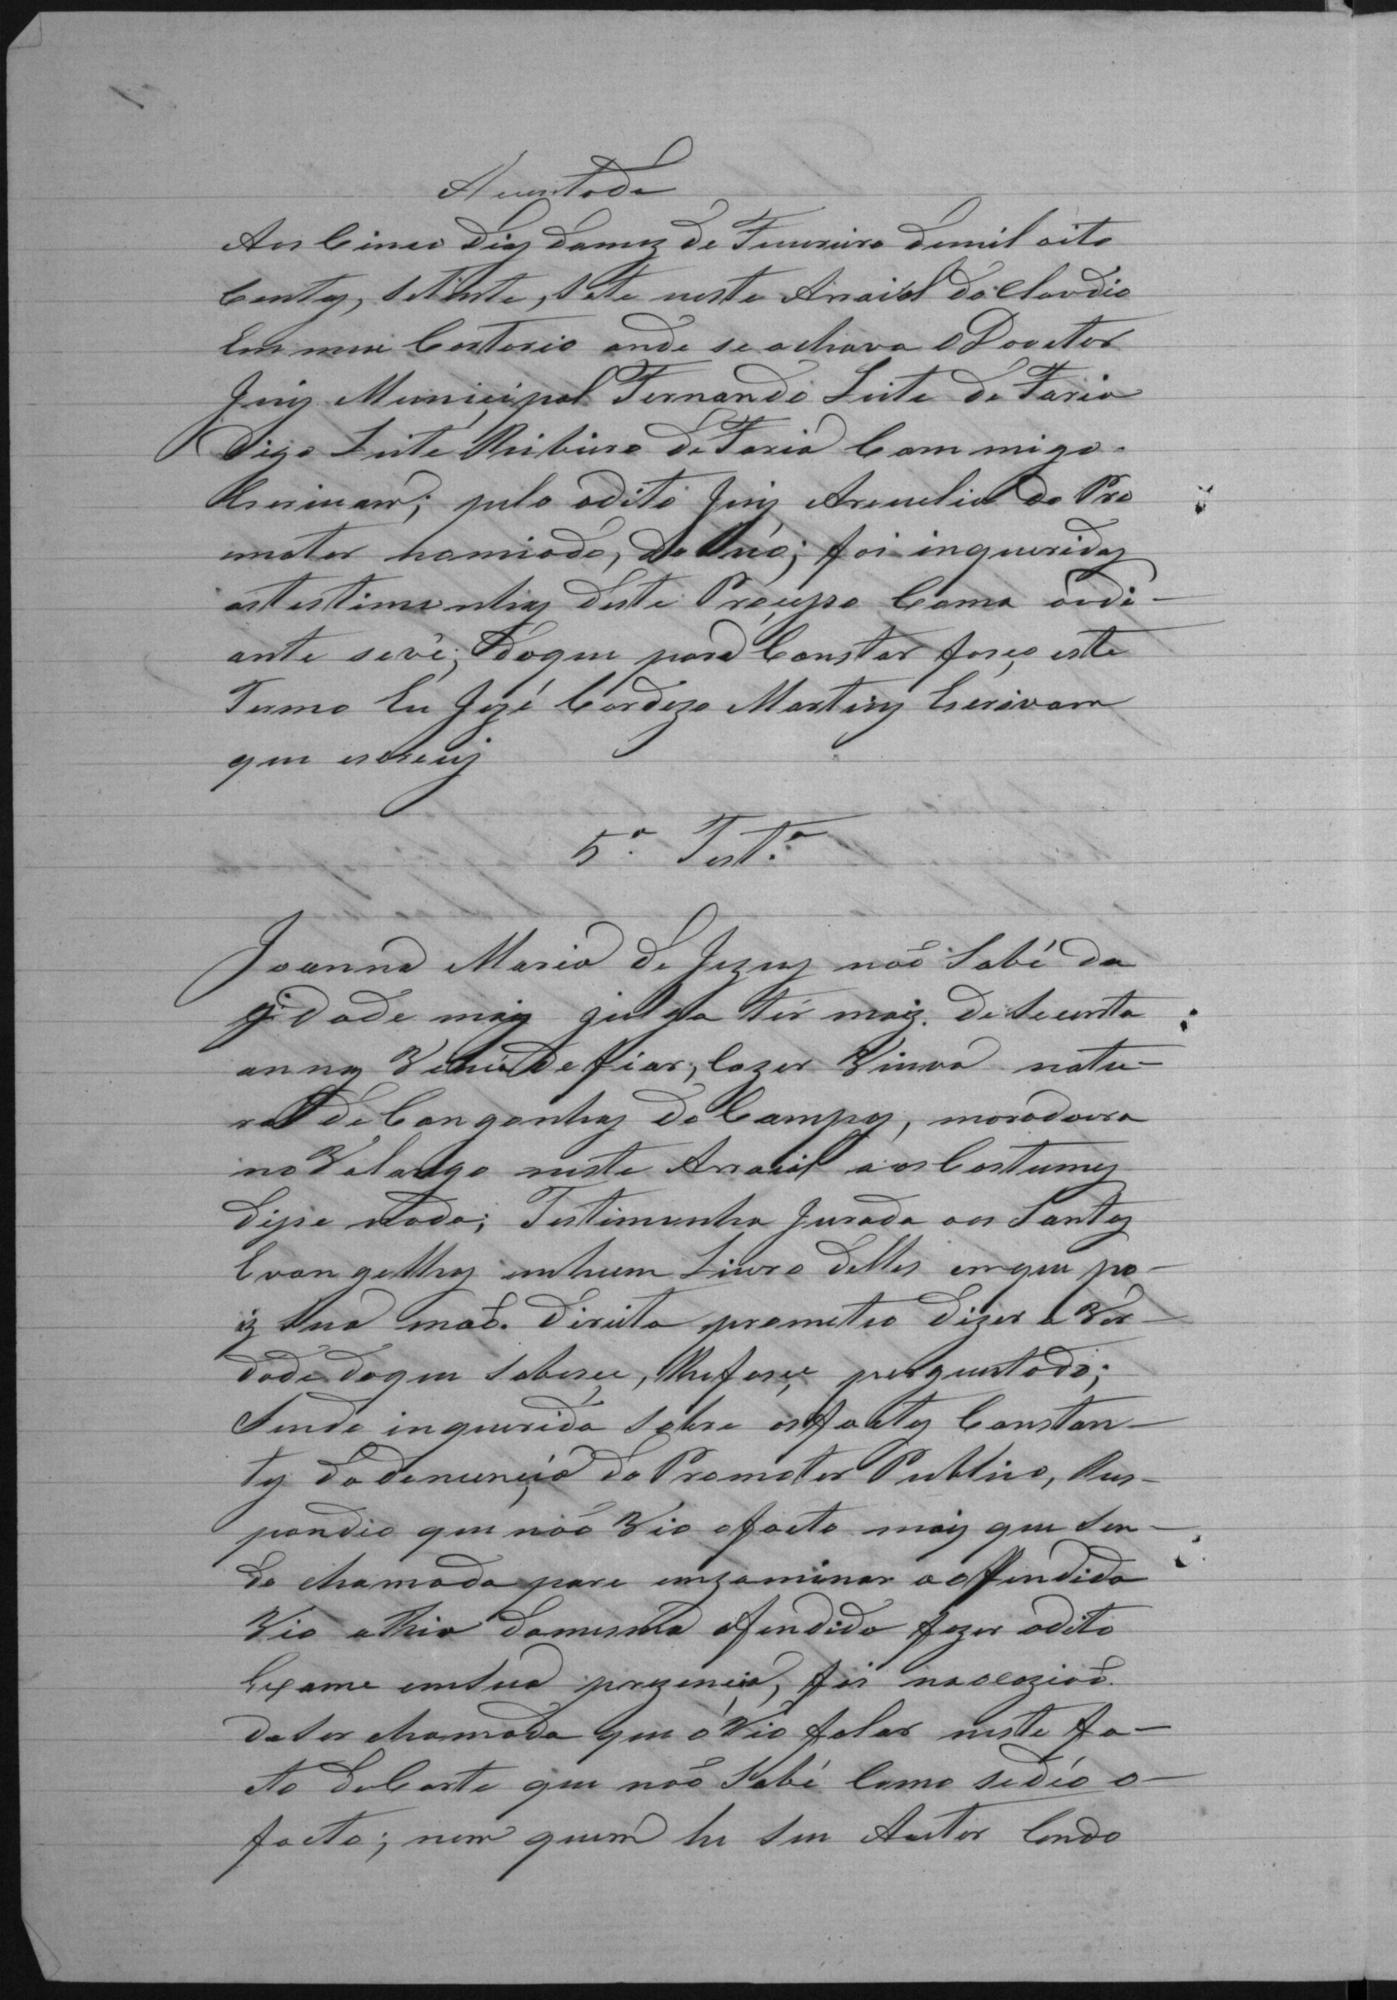 Assentada
Aos Cinco dias domez de Fevereiro demil oito
Centos, setenta, Sete neste Arraial do Claudio
em meu Cartorio onde se achava o Doutor
Juiz Municipal Fernando Leite de Faria
digo Leite Ribeiro de Faria Commigo
Escrivam; pelo odito Juiz do Pro
motor nomiado, do Réo; foi inqueridas
astestimunhas deste Proceço Como adi-
ante sevê; doque para Constar faço este
Termo Eu José Cardozo Martins Escrivam
que escrevi
5ª Testª
Joanna Maria de Jezus não Sabé da
idade mais julga têr mais de Secenta
annos Vevia de fiar, cozer Viuva natu-
ral de Congonhas do Campo, moradoura
no neste Arraial aos Costumes
diçe nada; Testimunha Jurada aos Santos
Evangelhos emhum Livro delles emque po-
iz Sua mão direita prometeo dizer a Ver-
dade doque Soubesse, lhefosse perguntado;
Sendo inquerida Sobre osfactos Constan-
tes da denuncia do Promotor Publico, Res-
pondio que não Vio ofacto mais que Sen-
do chamada para emzaminar aoffendida
Vio a Rio damesma ofendida fazer odito
Exame emSua prezencia, foi naocazião
deSer chamada que o Vio falar neste fa-
to deCorte que não Sabe Como sedeo o-
facto; nem quem he Seu Autor Cendo